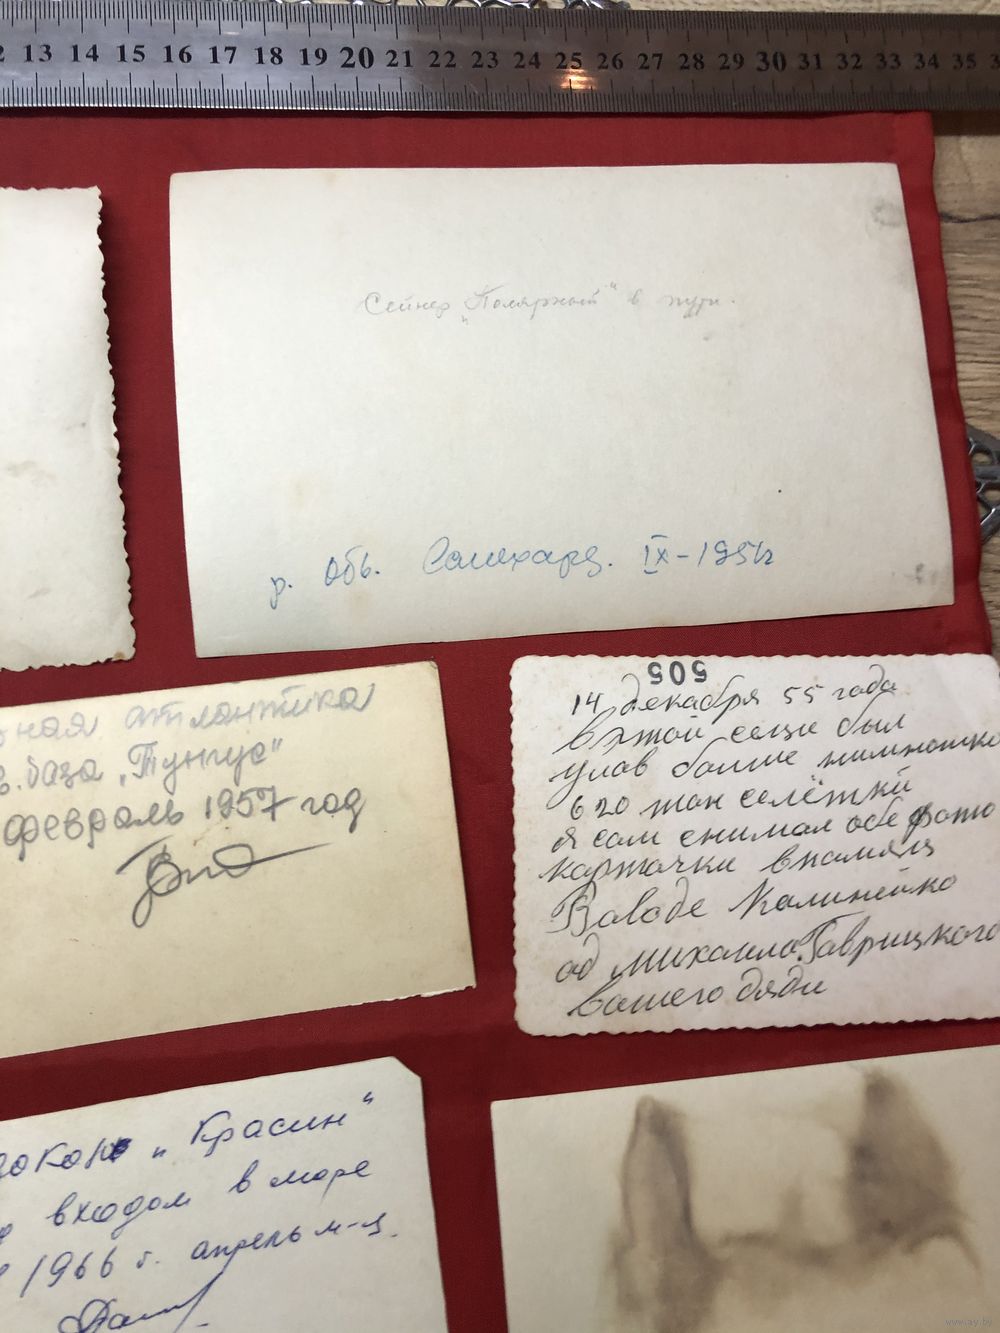 13 14 15 16 17 18 19 20 21 22 23 24 25 26 27 28 29 30 31 32 33 34 35
Сейнер „Полярный" в пути.
р. Обь. Салехард. IX-1951г
ная атлантика
в. база „Тунгус"
февраль 1957 год
505
14 декабря 55 года
в этой сеци был
улов болие нимношко
620 тон селёткй
я сам снимал обе фото
карточки впамяц
Ваводе Калинейко
од михаила Гаврицкого
вашего дяди
„Красин"
входом в море
1966 г. апрель м-ц.
www.ay.by